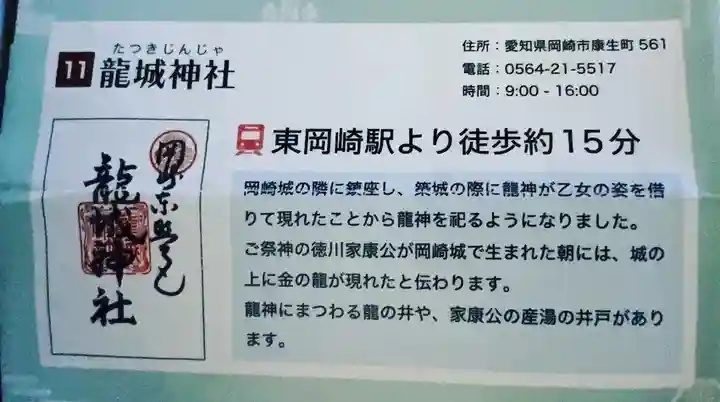 たつきじんじゃ
11 龍城神社
住所：愛知県岡崎市康生町 561
電話：0564-21-5517
時間：9:00 - 16:00
東岡崎駅より徒歩約15分
岡崎城の隣に鎮座し、築城の際に龍神が乙女の姿を借
りて現れたことから龍神を祀るようになりました。
ご祭神の徳川家康公が岡崎城で生まれた朝には、城の
上に金の龍が現れたと伝わります。
龍神にまつわる龍の井や、家康公の産湯の井戸があり
ます。
龍城神社